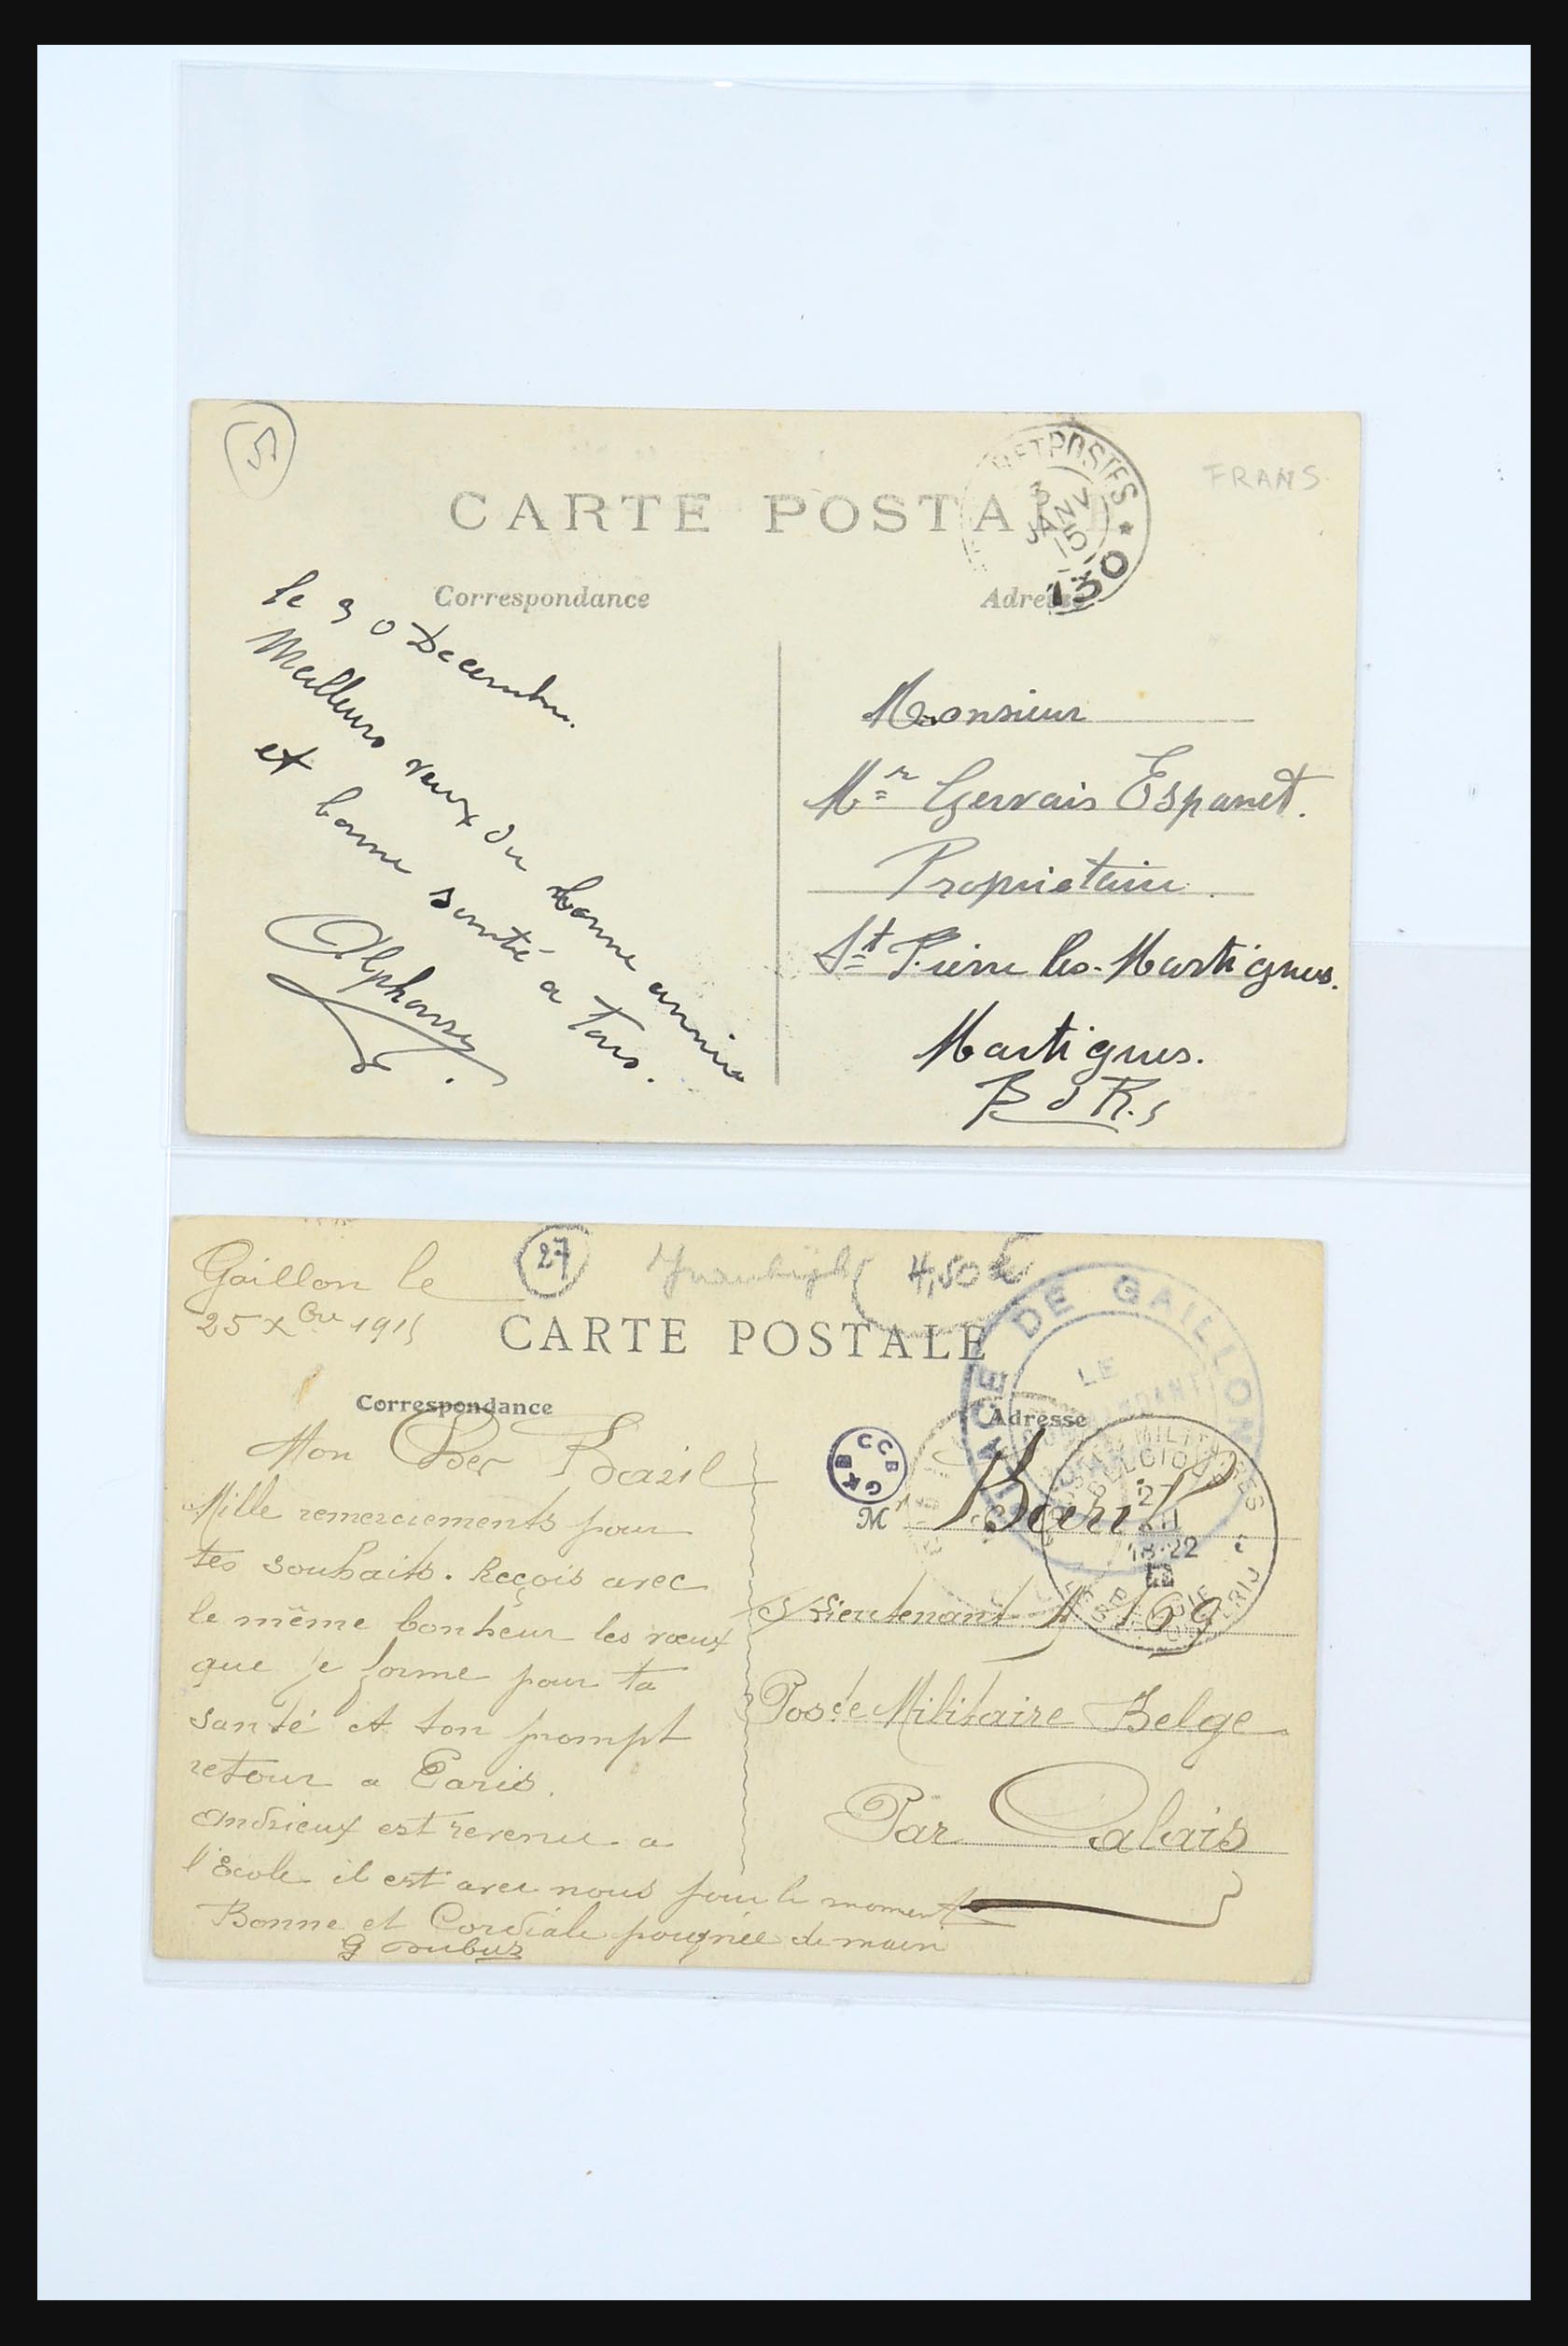 5
CARTE POSTALE
FRANS
ET POSTES *
3
JANV
15
130
Correspondance
Adresse
le 30 Decembre.
Meilleurs veux de bonne année
et bonne santé a tous.
Alphonse
Monsieur
Mr Gervais Espanet.
Proprietaire.
St Pierre les-Martigues.
Martigues.
B d R.s
Gaillon le
25 Xbre 1915
27
4,50
CARTE POSTALE
PLACE DE GAILLON
LE
COMMANDANT
Correspondance
Adresse
Mon Cher Bazil
Mille remerciements pour
tes souhaits. Reçois avec
le même bonheur les vœux
que je forme pour ta
santé et ton prompt
retour a Paris.
Andrieux est revenu a
l'Ecole il est avec nous pour le moment
Bonne et Cordiale poignée de main
G Dubus
CCB
GKB
POSTES MILITAIRES
BELGIQUE
27
XII
18-22
M Bazil
s/Lieutenant A 169
Poste Militaire Belge
Par Calais